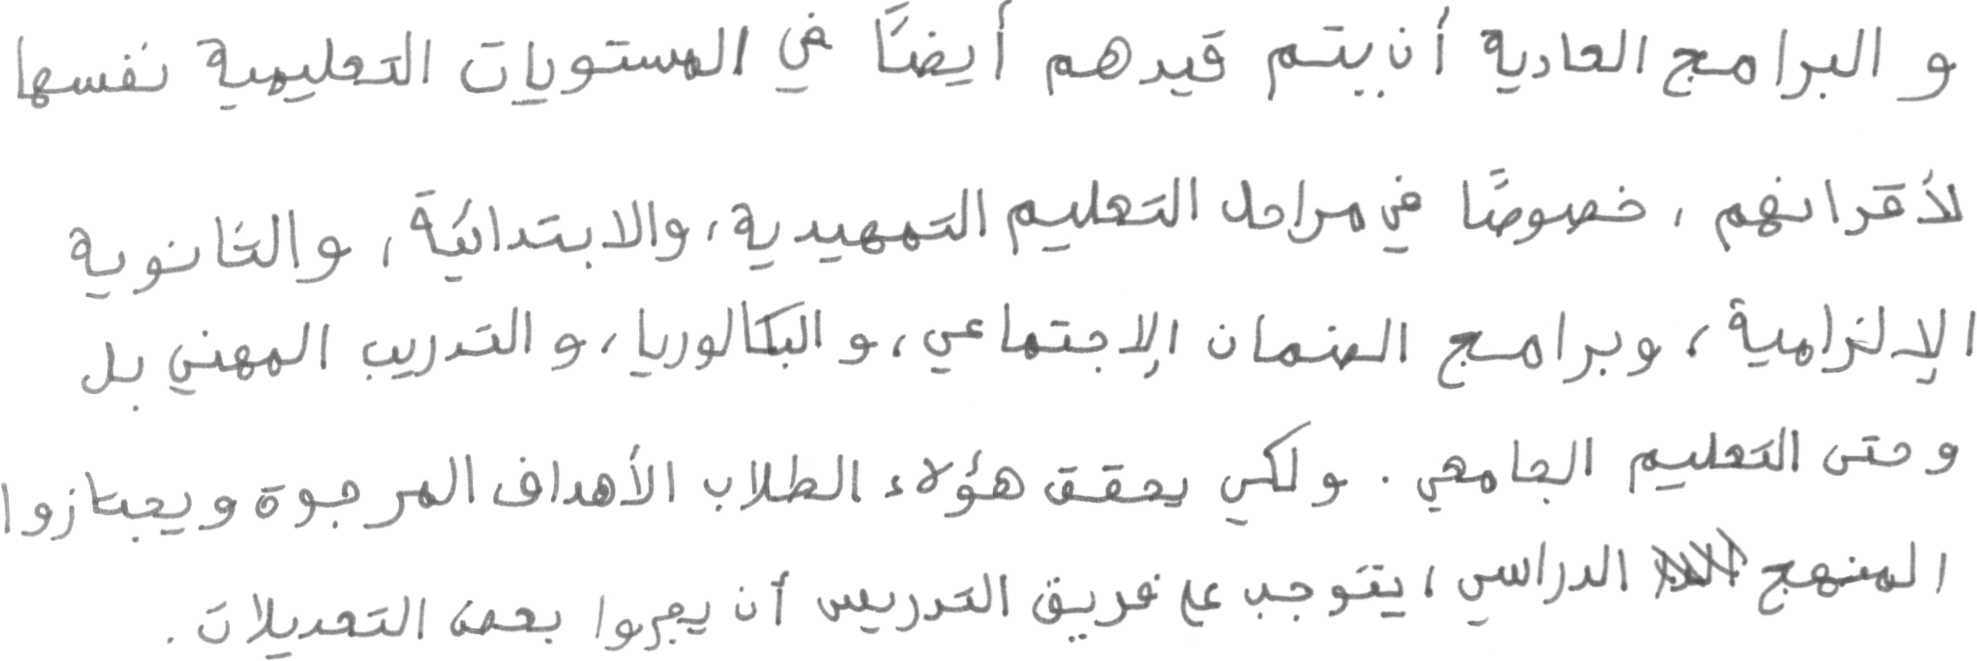 و البرامج العادية أن يتم قيدهم أيضًا في المستويات التعليمية نفسها
لأقرانهم ، خصوصًا في مراحل التعليم التمهيدية، والابتدائية ، والثانوية
الإلزامية ، وبرامج الضمان الإجتماعي ، و البكالوريا ، و التدريب المهني بل
و حتى التعليم الجامعي . و لكي يحقق هؤلاء الطلاب الأهداف المرجوة ويجتازوا
المنهج الدراسي ، يتوجب على فريق التدريس أن يجروا بعض التعديلات .